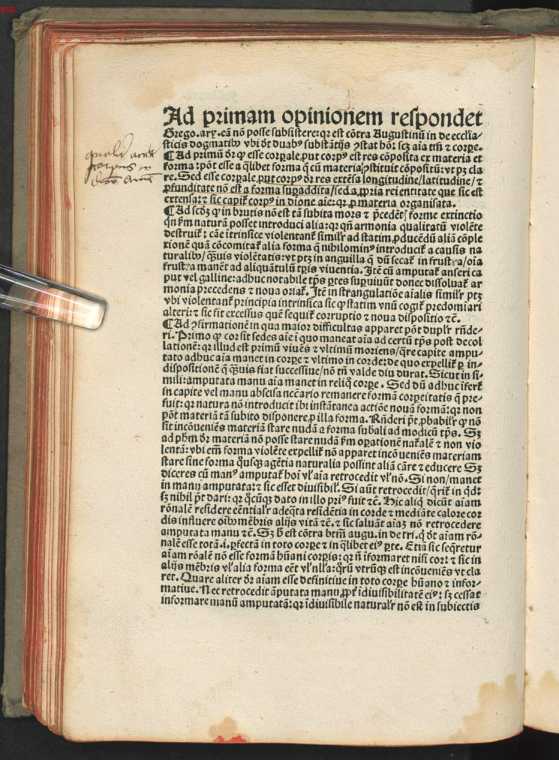 Ad primam opinionem respondet
Grego. ary. eā nō posse subsistere: qr est cōtra Augustinū in de ecclia-
sticis dogmatibꝰ vbi dr duabꝰ substātijs ꝯstat hōi. scz aia tm̄ ⁊ corpe.
¶ Ad primū dr ꝙ esse corpale, put corpꝰ est res cōposita ex materia et
forma ꝓōt esse a qlibet forma q̄ cū materia ꝯstituit cōpositū: vt ptz cla
re. Sed esse corpale, put corpꝰ dr res extēsa longitudine/latitudine/ ⁊
ꝓfunditate nō est a forma supaddita/sed a ꝓpria rei entitate que sic est
extensa: ⁊ sic capit̄ corpꝰ in dione aie: qr p materia organisata.
¶ Ad scdꝫ ꝙ in brutis nō est tā subita mors ⁊ p̄cedēt/ forme extinctio
qn̄ fm̄ naturā posset introduci alia: qr qn̄ armonia qualitatū violēte
destruit̄: cāe ītrinsice violentant̄ simil̄r ad statim ꝓducēdū aliā cōple
xionē quā cōcomitat̄ alia forma q̄ nihilominꝰ introducit̄ a causis na
turalibꝰ/ q̄uis violētatis: vt ptz in anguilla q̄ dū secat̄ in frustra/oīa
frustra manēt ad aliquātulū tp̄is viuentia. Itē cū amputat̄ anseri ca
put vel galline: adhuc notabile tp̄s ptes supuiuūt donec dissoluat̄ ar
monia precedens ⁊ noua oriat̄. Itē in strangulatiōe aialis simil̄r ptz
vbi violentant̄ principia intrinsica sic ꝙ statim vnū cogit̄ predomiari
alteri: ⁊ sic fit excessus quē sequit̄ corruptio ⁊ noua dispositio ⁊c̄.
¶ Ad ꝯfirmationē in qua maior difficultas apparet pōt duplr rn̄de-
ri. Primo ꝙ cor sit sedes aie ī quo maneat aia ad certū tp̄s post decol
lationē: qr illud est primū viuēs ⁊ vltimū moriens/qre capite ampu-
tato adhuc aia manet in corpe ⁊ vltimo in corde: de quo expellit̄ p in-
dispositionē q̄ q̄uis fiat successiue/nō tn̄ valde diu durat. Sicut in si-
mili: amputata manu aia manet in reliq̄ corpe. Sed dū adhuc ifert̄
in capite vel manu abscisa necārio remanere formā corpeitatis q̄ pre-
fuit: qr natura nō introducit ibi instātanea actiōe nouā formā: qr non
pōt materiā tā subito disponere p illa forma. Rn̄deri pōt ꝓbabilr ꝙ nō
sit incōueniēs materiā stare nudā a forma subali ad modicū tp̄s. Sꝫ
ad phm̄ dr materiā nō posse stare nudā fm̄ opationē nat̄alē ⁊ non vio
lentā: vbi em̄ forma violēte expellit̄ nō apparet incōueniēs materiam
stare sine forma q̄usq̨ agētia naturalia possint aliā cāre ⁊ educere Sꝫ
diceres cū manꝰ amputat̄ hoi vl̄ aia retrocedit vl̄ nō. Si non/manet
in manu amputata: ⁊ sic esset diuisibil̄. Si aūt retrocedit/
sꝫ nihil pōt dari: qr q̄cūqꝫ dato in illo priꝰ fuit ⁊c̄. Hic aliq̄ dicūt aiam
rōnalē residere eēntialr̄ adeq̄ta residētia in corde ⁊ mediāte calore cor
dis influere oībꝰ mēbris alijs vitā ⁊c̄. ⁊ sic saluāt aiaꝫ nō retrocedere
amputata manu ⁊c̄. Sꝫ ꝫ est cōtra btm̄ augu. in de tri. q̄ dr aiam rō-
nalē esse totā. i. pfectā in toto corpe ⁊ in qlibet eiꝰ pte. Etiā sic seq̄retur
aiam rōalē nō esse formā hūani corpis: qr nī iformaret nisi cor: ⁊ sic in
alijs mēbris vl̄ alia forma eēt vl̄ nlla: qrū vtrūqꝫ est incōueniēs vt cla
ret. Quare aliter dr aiam esse definitiue in toto corpe hūano ⁊ infor-
matiue. Nec retrocedit āputata manu ꝓpt̄ idiuisibilitatē eiꝰ: sꝫ cessat
informare manū amputatā: qr idiuisibile naturalr̄ nō est in subiectis